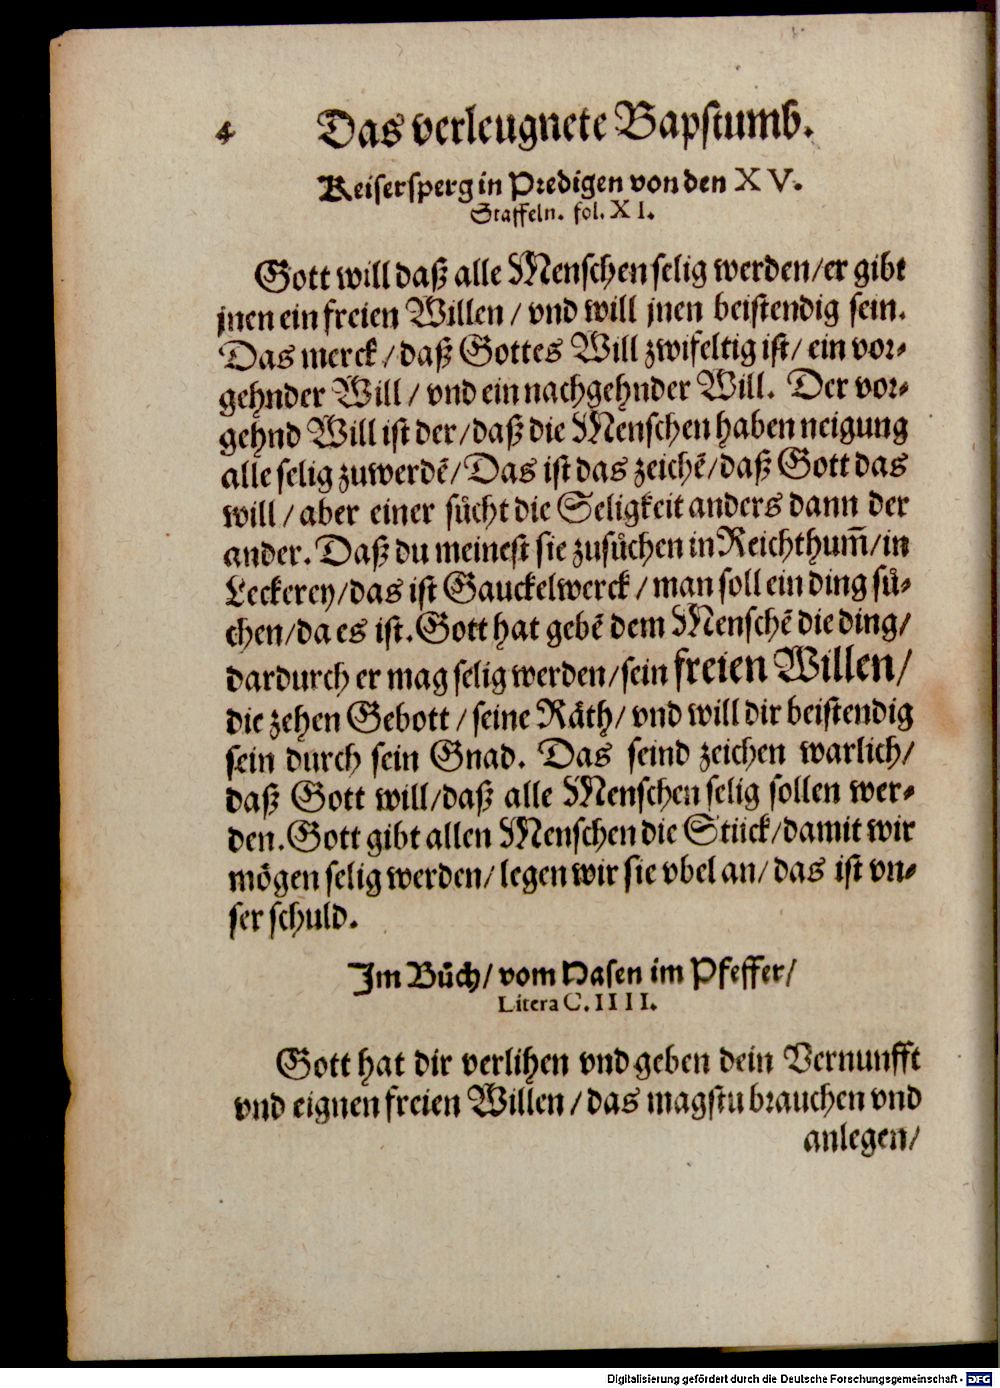 4 Das verleugnete Bapstumb.
Keisersperg in Predigen von den XV.
Staffeln. fol. XI.
Gott will daß alle Menschen selig werden/ er gibt
jnen ein freien Willen / vnd will jnen beistendig sein.
Das merck / daß Gottes Will zwifeltig ist/ ein vor⸗
gehnder Will / vnd ein nachgehnder Will. Der vor⸗
gehnd Will ist der/ daß die Menschen haben neigung
alle selig zuwerdẽ/ Das ist das zeichẽ/ daß Gott das
will / aber einer sůcht die Seligkeit anders dann der
ander. Daß du meinest sie zusůchen in Reichthum̃/ in
Leckerey/ das ist Gauckelwerck / man soll ein ding sů⸗
chen/ da es ist. Gott hat gebẽ dem Menschẽ die ding/
dardurch er mag selig werden/ sein freien Willen/
die zehen Gebott / seine Räth/ vnd will dir beistendig
sein durch sein Gnad. Das seind zeichen warlich/
daß Gott will/ daß alle Menschen selig sollen wer⸗
den. Gott gibt allen Menschen die Stück/ damit wir
mögen selig werden/ legen wir sie vbel an/ das ist vn⸗
ser schuld.
Im Bůch/ vom Hasen im Pfeffer/
Litera C. IIII.
Gott hat dir verlihen vnd geben dein Vernunfft
vnd eignen freien Willen / das magstu brauchen vnd
anlegen/
Digitalisierung gefördert durch die Deutsche Forschungsgemeinschaft - DFG